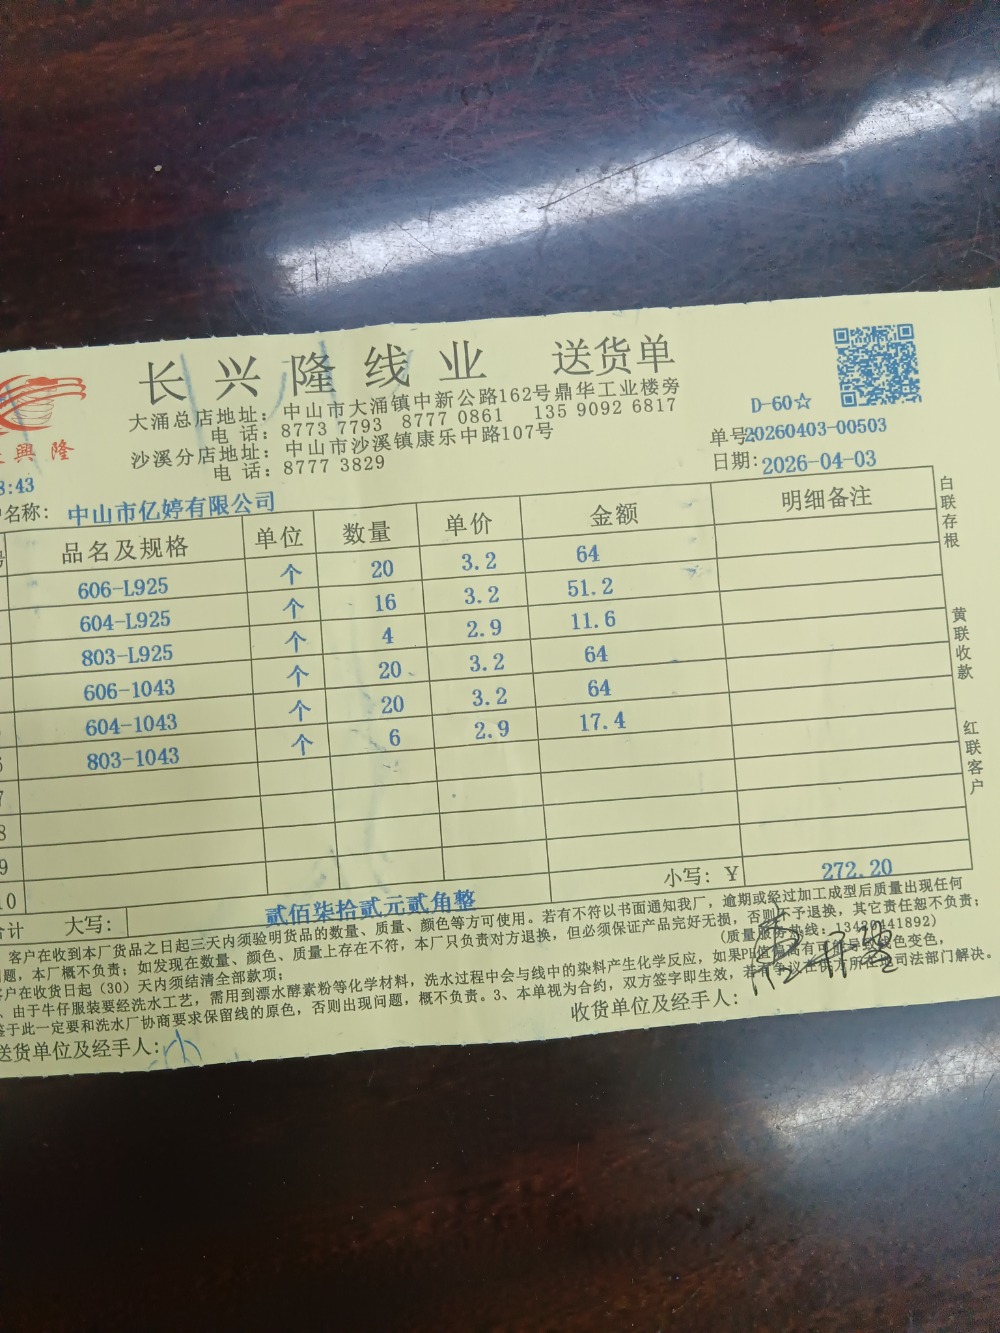 长兴隆线业 送货单
大涌总店地址：中山市大涌镇中新公路162号鼎华工业楼旁
电 话：8773 7793 8777 0861 135 9092 6817
沙溪分店地址：中山市沙溪镇康乐中路107号
电 话：8777 3829
興 隆
D-60☆
单号20260403-00503
日期：2026-04-03
8:43
名称：中山市亿婷有限公司
品名及规格 单位 数量 单价 金额 明细备注
606-L925 个 20 3.2 64
604-L925 个 16 3.2 51.2
803-L925 个 4 2.9 11.6
606-1043 个 20 3.2 64
604-1043 个 20 3.2 64
6 803-1043 个 6 2.9 17.4
7
8
9
10 小写：￥ 272.20
合计 大写：贰佰柒拾贰元贰角整
白联存根
黄联收款
红联客户
客户在收到本厂货品之日起三天内须验明货品的数量、质量、颜色等方可使用。若有不符以书面通知我厂，逾期或经过加工成型后质量出现任何
问题，本厂概不负责；如发现在数量、颜色、质量上存在不符，本厂只负责对方退换，但必须保证产品完好无损，否则不予退换，其它责任恕不负责；
客户在收货日起（30）天内须结清全部款项； (质量服务热线：
、由于牛仔服装要经洗水工艺，需用到漂水酵素粉等化学材料，洗水过程中会与线中的染料产生化学反应，如果PH值偏高有可能导致线色变色，
鉴于此一定要和洗水厂协商要求保留线的原色，否则出现问题，概不负责。3、本单视为合约，双方签字即生效，若有争议在供方所在地司法部门解决。
送货单位及经手人： 收货单位及经手人：